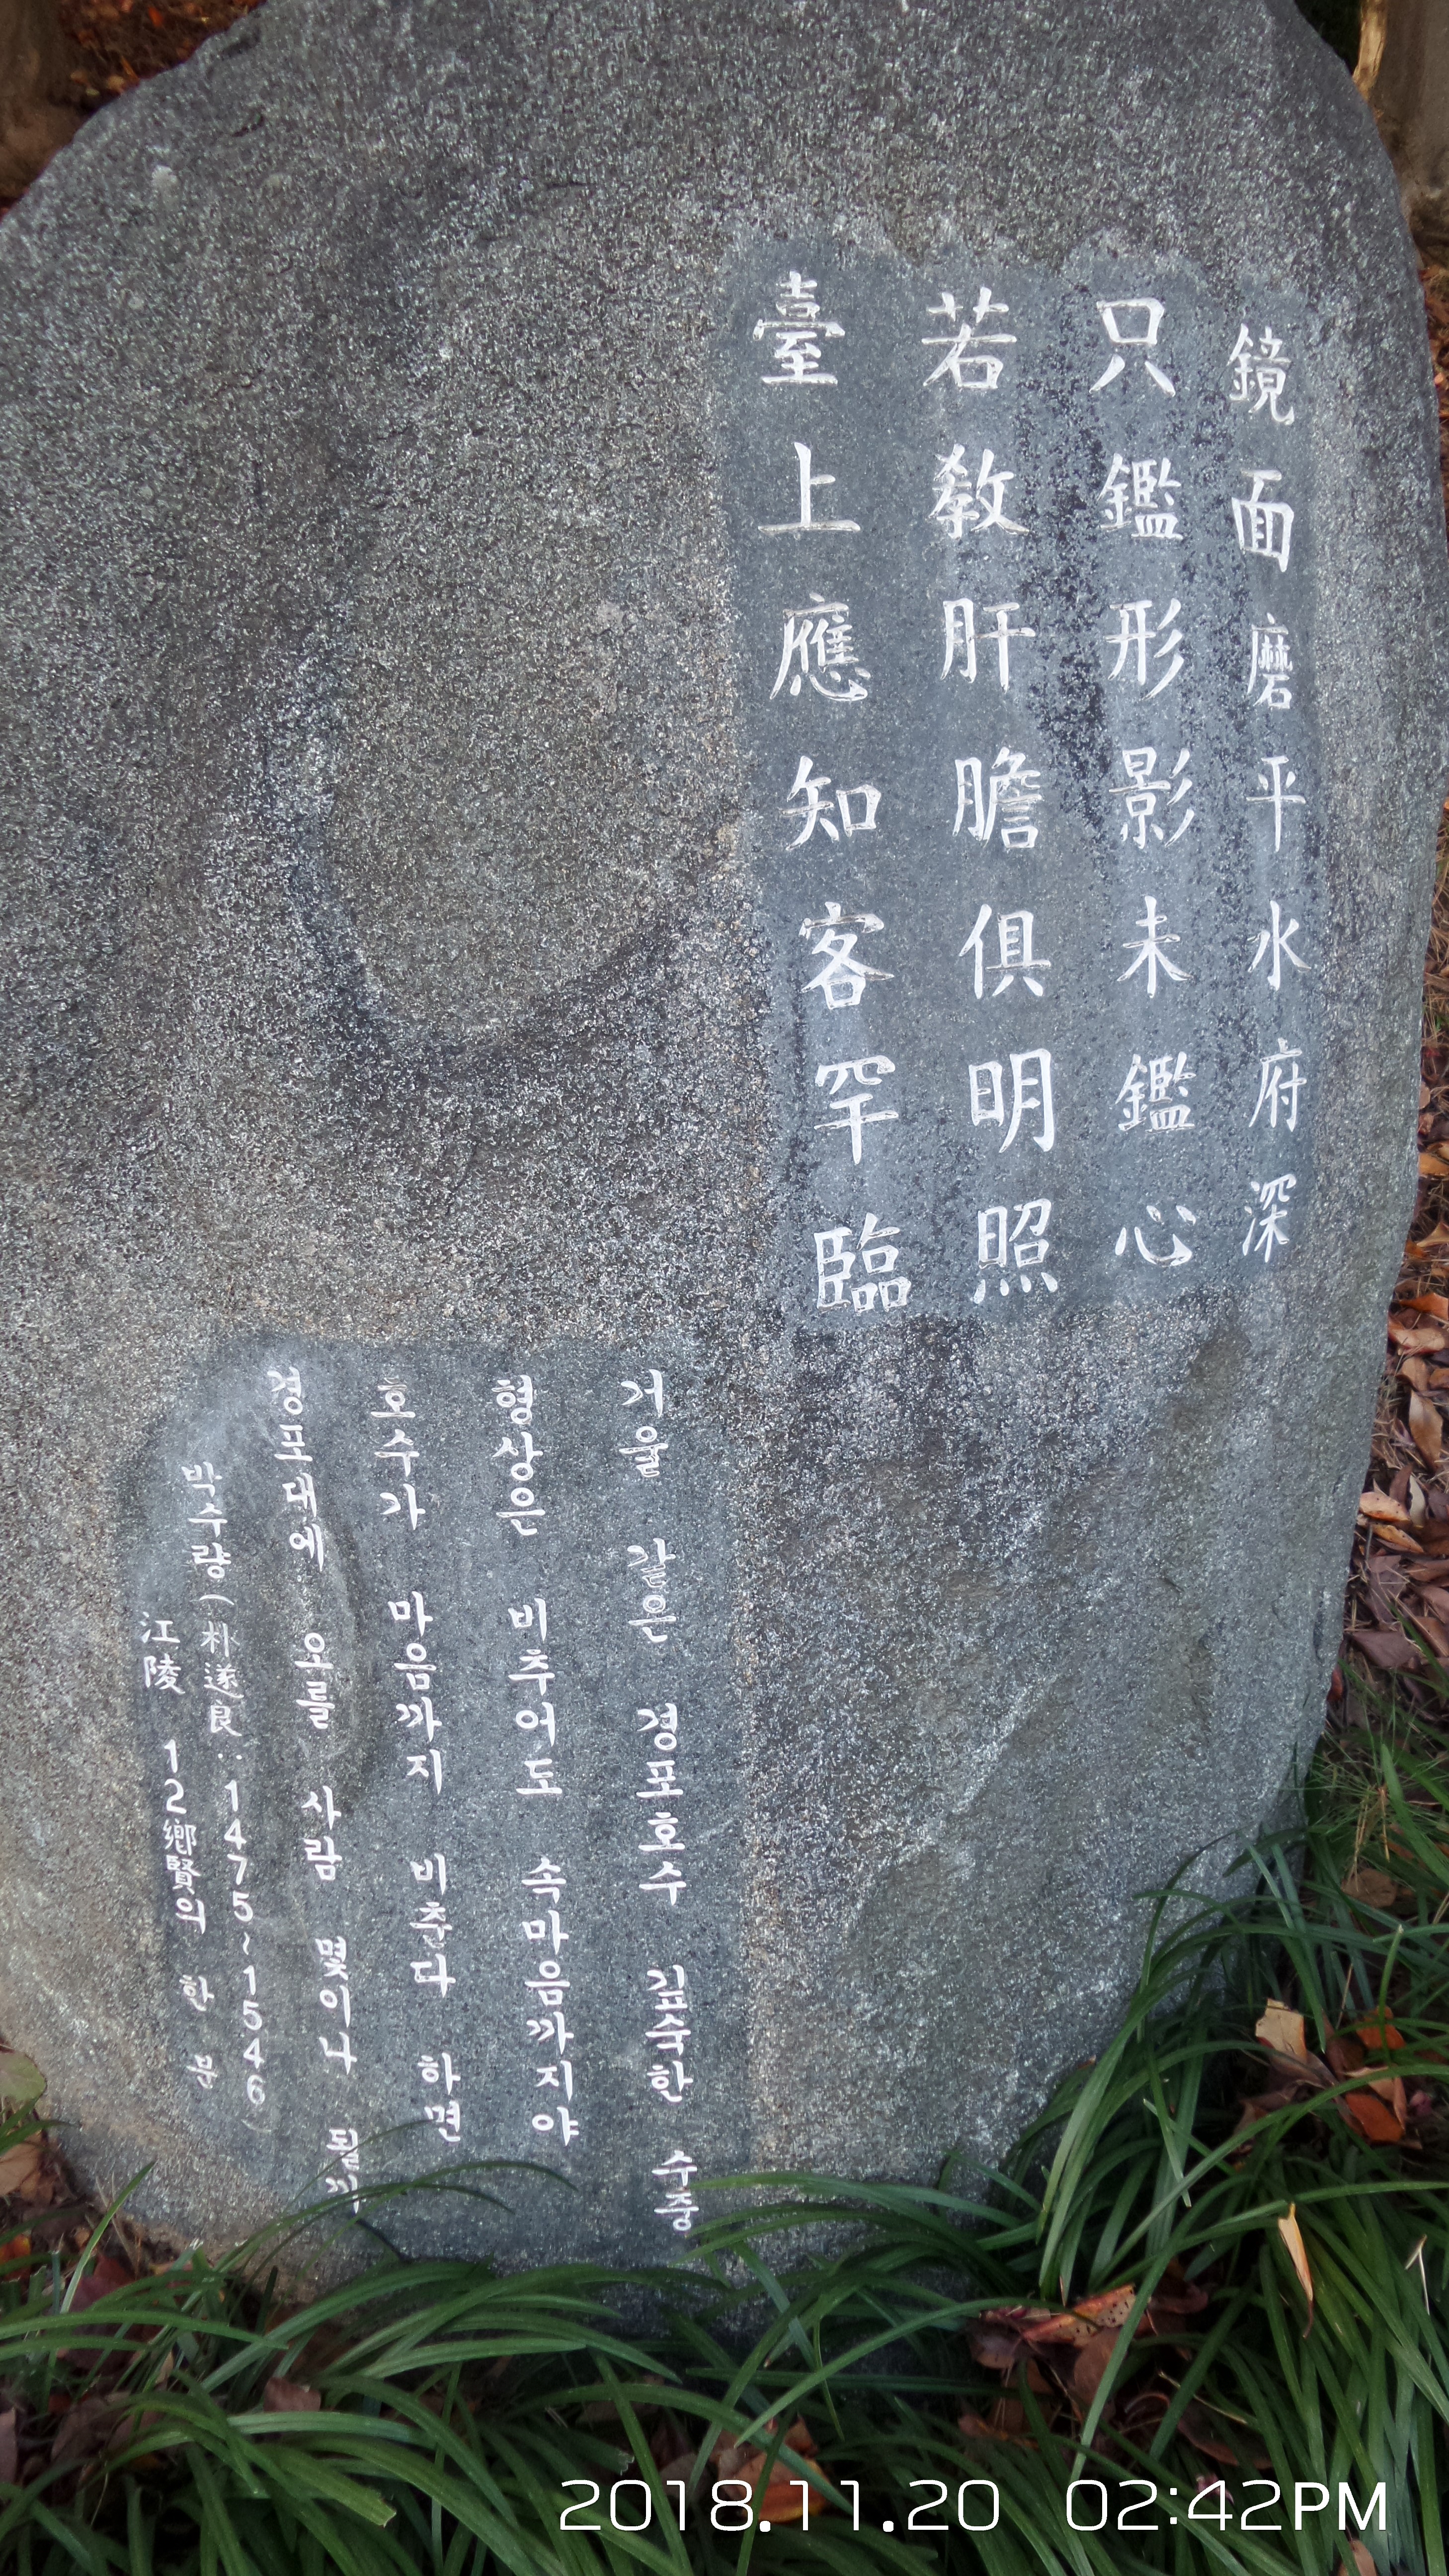 鏡面磨平水府深
只鑑形影未鑑心
若敎肝膽俱明照
臺上應知客罕臨
거울 같은 경포호수 깊숙한 수중
형상은 비추어도 속마음까지야
호수가 마음까지 비춘다 하면
경포대에 오를 사람 몇이나 될까
박수량(朴遂良: 1475~1546)
江陵 12鄕賢의 한 분
2018.11.20 02:42PM